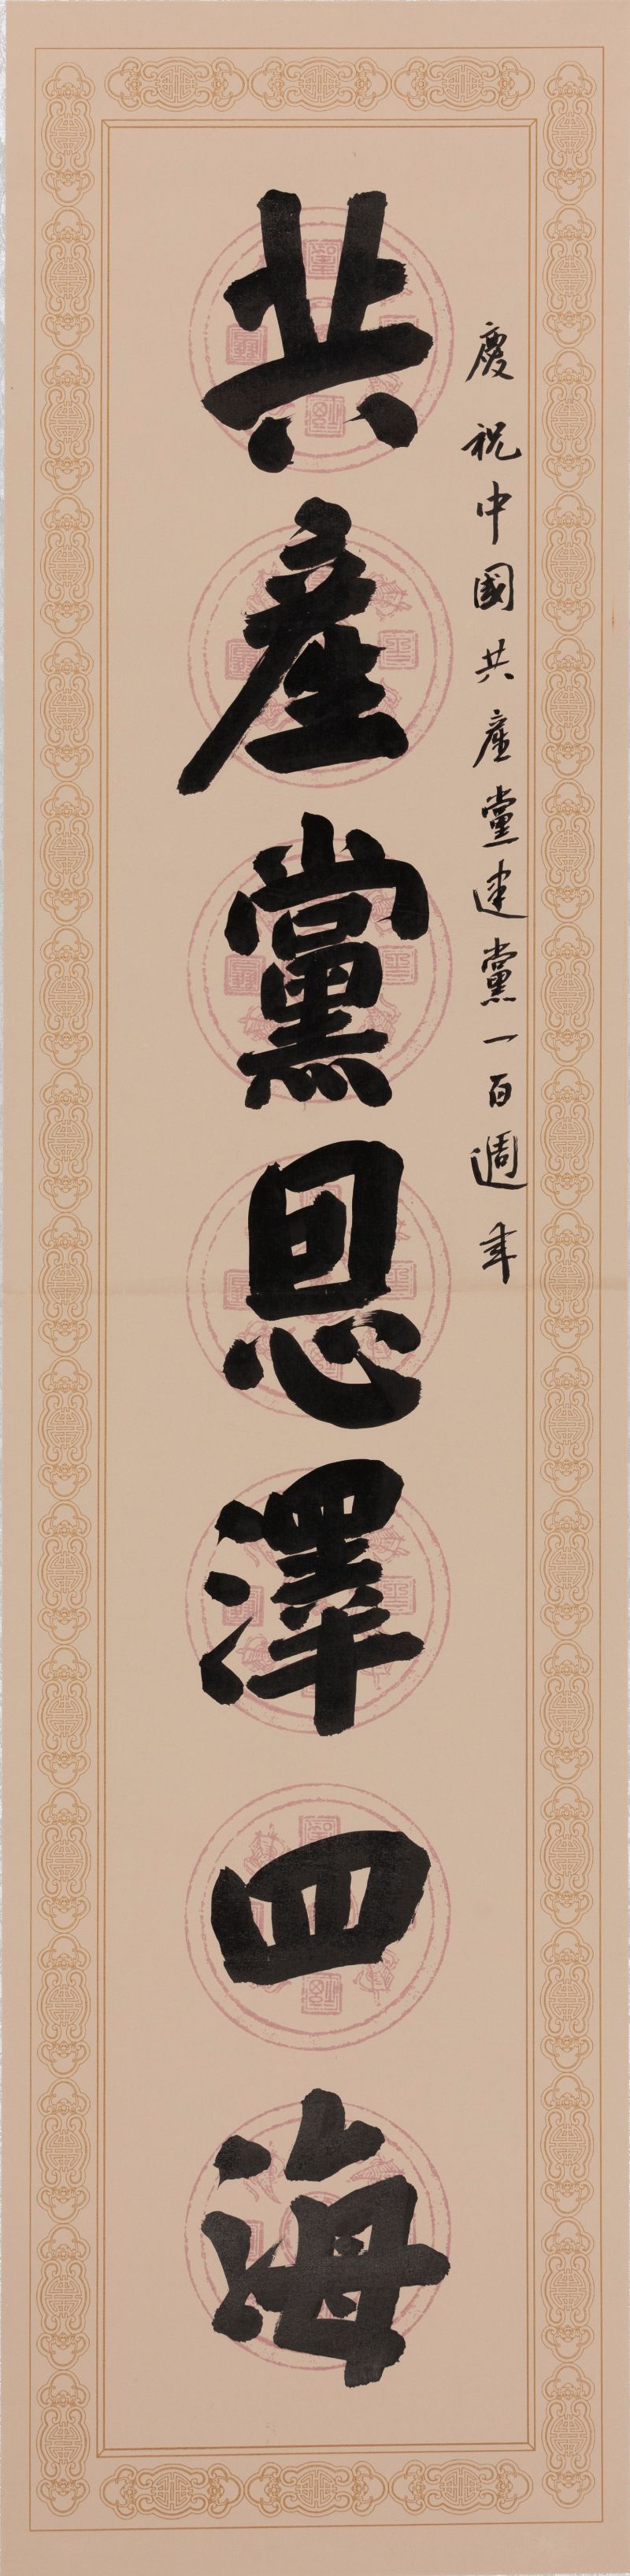 慶祝中國共產黨建黨一百週年
共產黨恩澤四海